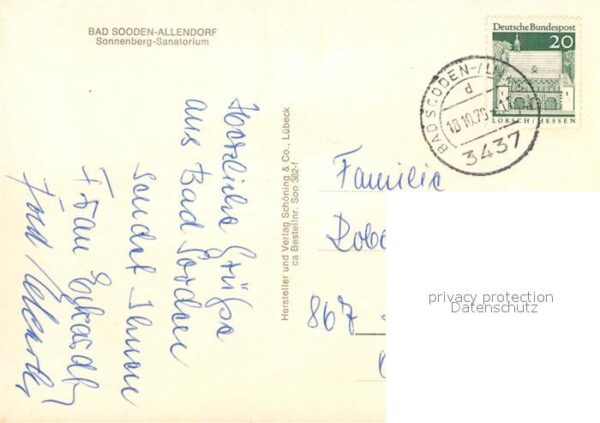 BAD SOODEN-ALLENDORF
Sonnenberg-Sanatorium
Herzliche Grüße
aus Bad Sooden
sendet Ihnen
Frau
Hersteller und Verlag Schöning & Co., Lübeck
ca Bestellnr. Soo 362-1
Deutsche Bundespost
20
LORSCH/HESSEN
BAD SOODEN-
d
3437
Familie
867
privacy protection
Datenschutz